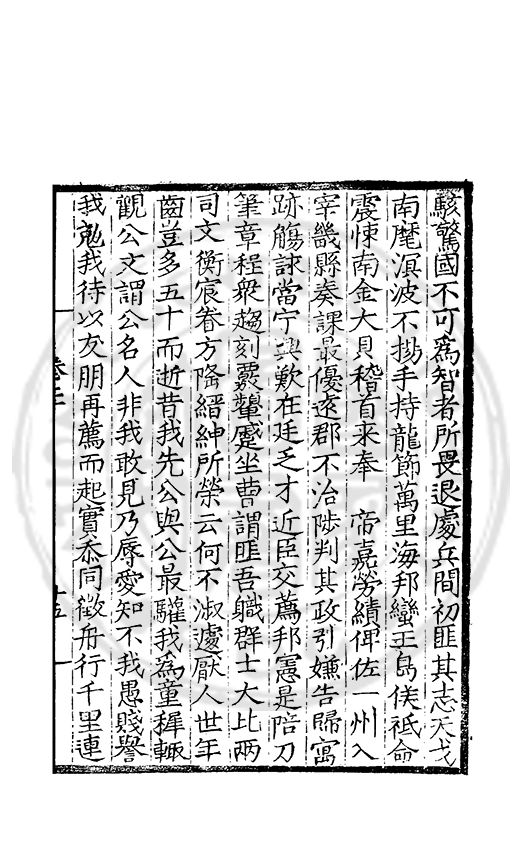 駭驚國不可爲智者所畏退處兵間初匪其志天戈
南麾溟波不揚手持龍節萬里海邦蠻王島侯祗命
震悚南金大貝稽首來奉　帝嘉勞績俾佐一州入
宰畿縣奏課最優遠郡不治陟判其政引嫌告歸寓
跡觴詠當宁興歎在廷乏才近臣交薦邦憲是陪刀
筆章程衆趨刻覈顰蹙坐曹謂匪吾職群士大比兩
司文衡宸眷方隆縉紳所榮云何不淑遽厭人世年
齒豈多五十而逝昔我先公與公最驩我爲童穉輒
觀公文謂公名人非我敢見乃辱愛知不我愚賤譽
我勉我待以友朋再薦而起實忝同徵舟行千里連
十五